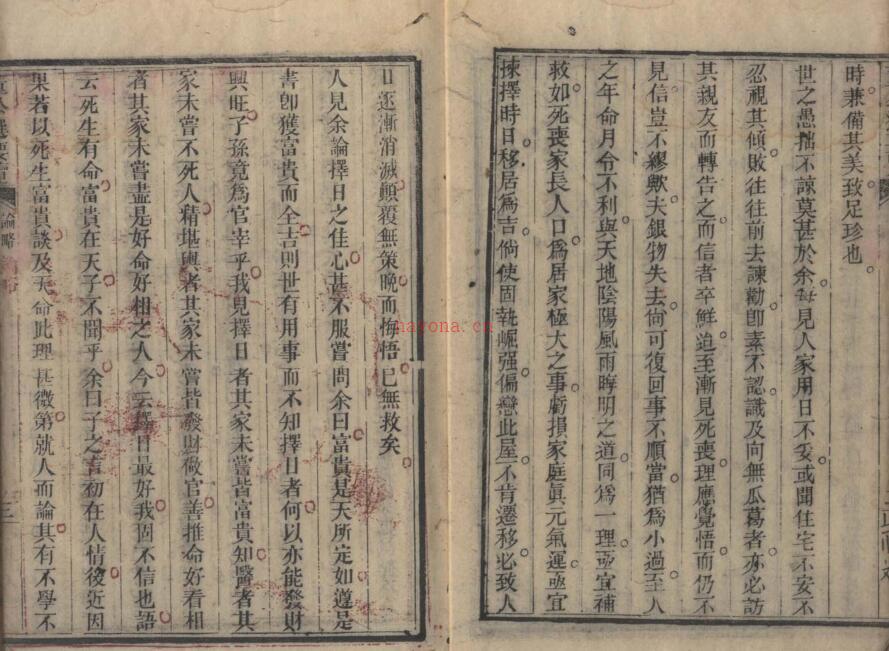 時兼備其美致足珍也
世之愚拙不諒莫甚於余每見人家用日不妥或聞住宅不安不
忍視其傾敗往往前去諫勸卽素不認識及向無瓜葛者亦必訪
其親友而轉告之而信者卒鮮迨至漸見死喪理應覺悟而仍不
見信豈不繆歟夫銀物失去尙可復回事不順當猶爲小過至人
之年命月令不利與天地陰陽風雨晦明之道同爲一理亟宜補
救如死喪家長人口爲居家極大之事虧損家庭眞元氣運亟宜
揀擇時日移居爲吉倘使固執崛强偏戀此屋不肯遷移必致人
口逐漸消滅顚覆無策晚而悔悟已無救矣
人見余論擇日之佳心甚不服嘗問余曰富貴是天所定如遵是
書卽獲富貴而全吉則世有用事而不知擇日者何以亦能發財
興旺子孫竟爲官宰乎我見擇日者其家未嘗皆富貴知醫者其
家未嘗不死人精堪輿者其家未嘗皆發財做官善推命好看相
者其家未嘗盡是好命好相之人今云擇日最好我固不信也語
云死生有命富貴在天子不聞乎余曰子之言初在人情後近因
果若以死生富貴談及天命此理甚微第就人而論其有不學不
論略
三
harona.cn